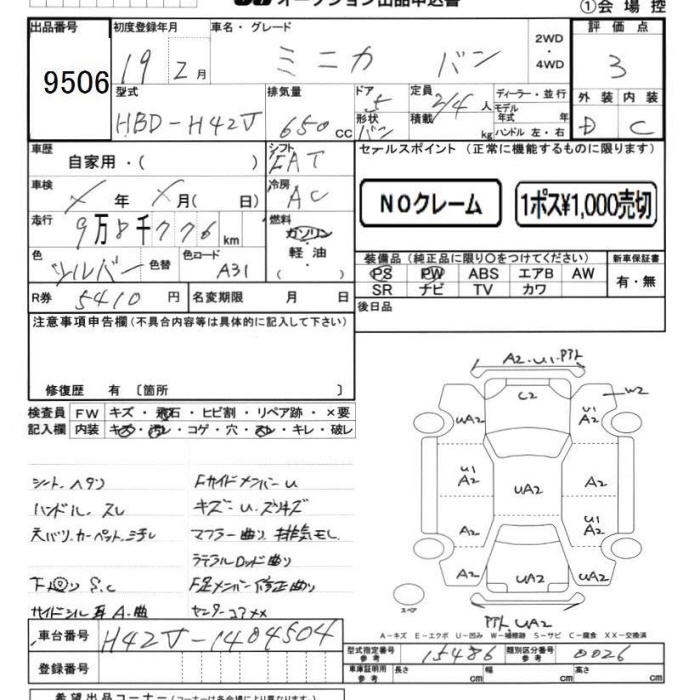 オークション出品申込書
①会場控
出品番号 初度登録年月 車名・グレード 2WD ・ 4WD 評価点
9506 19 2月 ミニカ バン 3
型式 排気量 ドア 5 定員 2/4 人 ディーラー・並行 外装 内装
HBD-H42V 650 CC 形状 バン 積載 kg モデル年式 年 D C
ハンドル 左・右
車歴 自家用・( ) シフト FAT セールスポイント (正常に機能するものに限ります)
車検 メ 年 メ 月( 日) 冷房 AC NOクレーム 1ポス¥1,000売切
走行 9万8千776km 燃料 ガソリン
軽油
( )
色 シルバー 色替 色コード A31 装備品(純正品に限り○をつけてください) 新車保証書
PS PW ABS エアB AW 有・無
SR ナビ TV カワ
R券 5410 円 名変期限 月 日 後日品
注意事項申告欄(不具合内容等は具体的に記入して下さい)
修復歴 有〔箇所 〕
検査員 FW キズ・飛石・ヒビ割・リペア跡・×要
記入欄 内装 キズ・汚れ・コゲ・穴・スレ・キレ・破レ
A2.U1.PTト
C2 W2
UA2 U1 A2
U1 A2 UA2 A2
A2 U1 A2
A2 UA2 UA2
PTト UA2
スペア
シート.ヘタリ Fサイドメンバーu
ハンドル.スレ キズ・u.ズリキズ
天バリ.カーペット.ミ汚レ マフラー曲り 排気モレ
ラテラルロッド曲り
下廻り S.C F足メンバー修正曲り
サイドシル 耳 A.曲 センターコアメメ
A-キズ E-エクボ U-凹み W-補修跡 S-サビ C-腐食 XX-交換済
車台番号 H42V-1404504 型式指定番号 参考 15486 類別区分番号 参考 0026
登録番号 車庫証明用 参考 長さ cm 幅 cm 高さ cm
希望出品コーナー(コーナーは各会場により異なります)